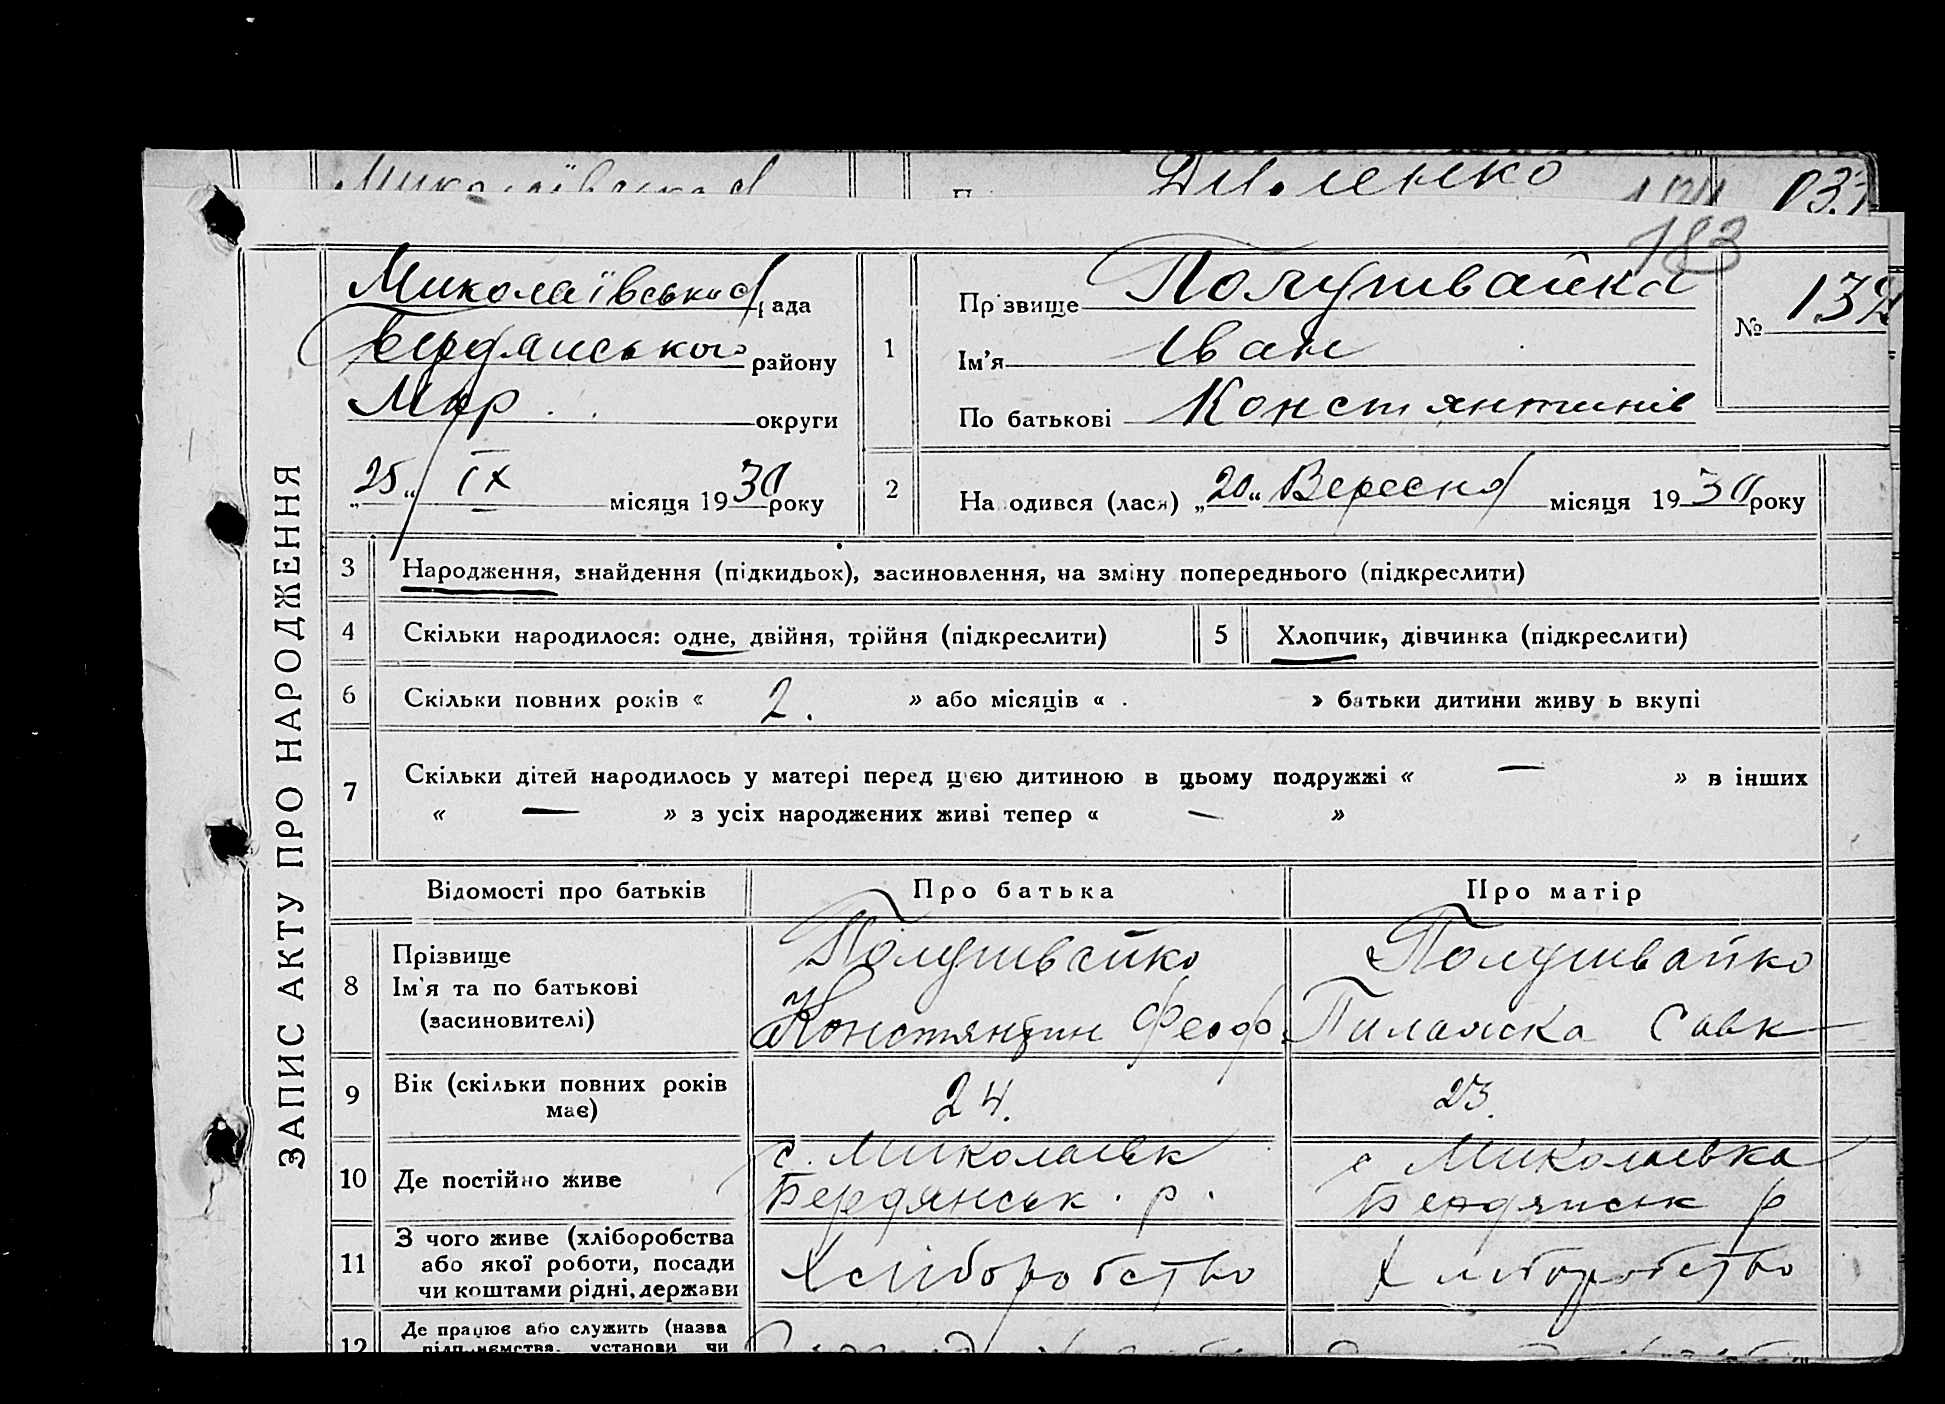 Миколаївська
183
ЗАПИС АКТУ ПРО НАРОДЖЕННЯ
Миколаївська рада
Бердянського району
Мар. округи
„25“ IX місяця 1930 року
1
Прізвище Полушвайко
Ім'я Іван
По батькові Константинів
№ 132
2
Народився (лася) „20“ Вересня місяця 1930 року
3 Народження, знайдення (підкидьок), засиновлення, на зміну попереднього (підкреслити)
4 Скільки народилося: одне, двійня, трійня (підкреслити)
5 Хлопчик, дівчинка (підкреслити)
6 Скільки повних років « 2. » або місяців « » батьки дитини живуть вкупі
7 Скільки дітей народилось у матері перед цією дитиною в цьому подружжі « — » в інших
« — » з усіх народжених живі тепер « — »
Відомості про батьків Про батька Про матір
8 Прізвище
Ім'я та по батькові
(засиновителі)
Полушвайко
Константин Феоф.
Полушвайко
Савк
9 Вік (скільки повних років
має)
24.
23.
10 Де постійно живе
с. Миколаївк
Бердянськ. р.
с Миколаївка
Бердянськ р
11 З чого живе (хліборобства
або якої роботи, посади
чи коштами рідні, держави
Хліборобство
Хліборобство
12 Де працює або служить (назва
підприємства, установи чи